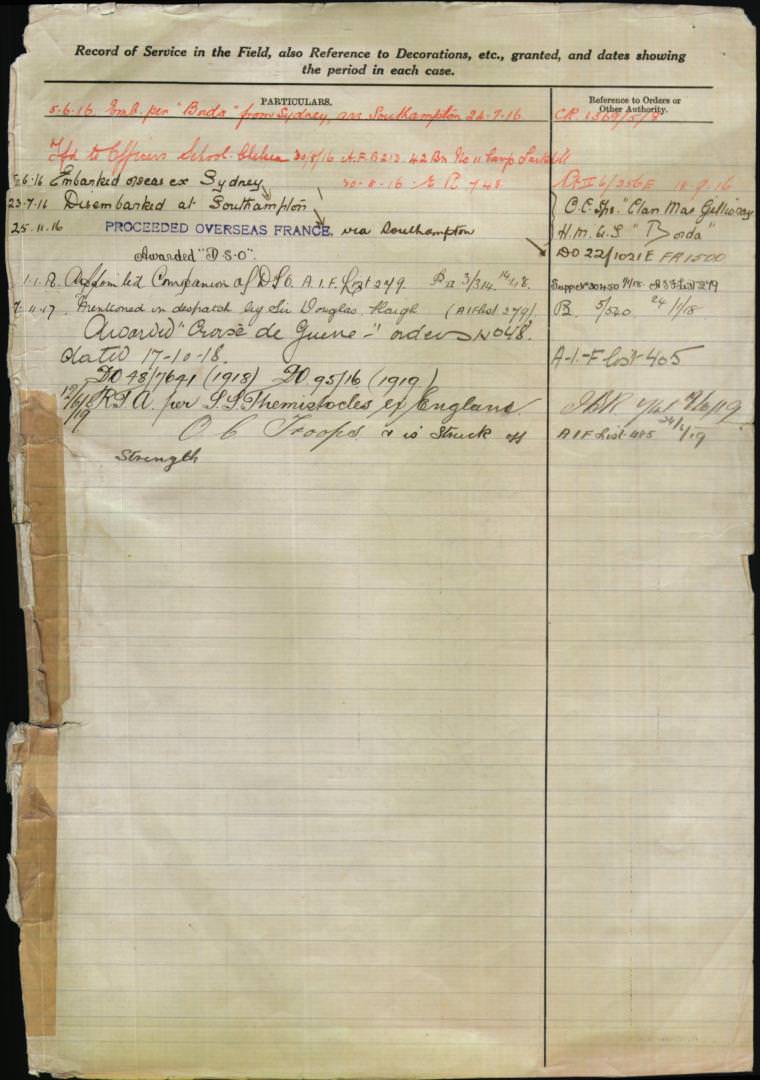 Record of Service in the Field, also Reference to Decorations, etc., granted, and dates showing
the period in each case.
PARTICULARS.
Reference to Orders or
Other Authority.
5-6-16 Emb. per "Borda" from Sydney, arr Southampton 24-7-16
CR 1369/5/9
Tfd to Officers School Chelsea 30/8/16 A.F.B213. 42 Bn No 11 Camp Larkhill
30-8-16
18-9-16
5-6-16 Embarked overseas ex Sydney
23-7-16 Disembarked at Southampton
O.C. Tps. "Clan Mac Gillivray
25-11-16 PROCEEDED OVERSEAS FRANCE. via Southampton
"Borda"
DO 22/1021E FR1500
Awarded "D.S.O".
1-1-18. Appointed Companion of DSO. A.I.F. List 279. 3/314
Supp 30450 List 279
7-11-17 Mentioned in despatch by Sir Douglas Haigh (AIF List 279).
5/520 24/1/18
Awarded "Croix de Guerre" orders 1048.
dated 17-10-18.
A-I-F List 405
DO 48/7641 (1918) DO 95/16 (1919)
12/6/19 R.T.A. per S.S. Themistocles ex England
O C Troops & is Struck off
AIF List 485
Strength